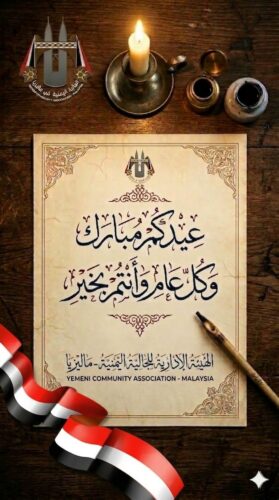 عِيدُكُمْ مُبَارَك
وَكُلُّ عَامٍ وَأَنْتُمْ بِخَيْرٍ
الهيئة الإدارية للجالية اليمنية - ماليزيا
YEMENI COMMUNITY ASSOCIATION - MALAYSIA